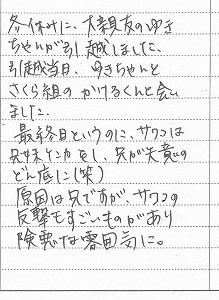 冬休みに、大親友のゆき
ちゃんが引越しました。
引越当日、ゆきちゃんと
さくら組のかけるくんと会い
ました。
最終日というのに、サワコは
兄妹ケンカをし、兄が失意の
どん底に(笑)
原因は兄ですが、サワコの
反撃もすごいものがあり
険悪な雰囲気に。